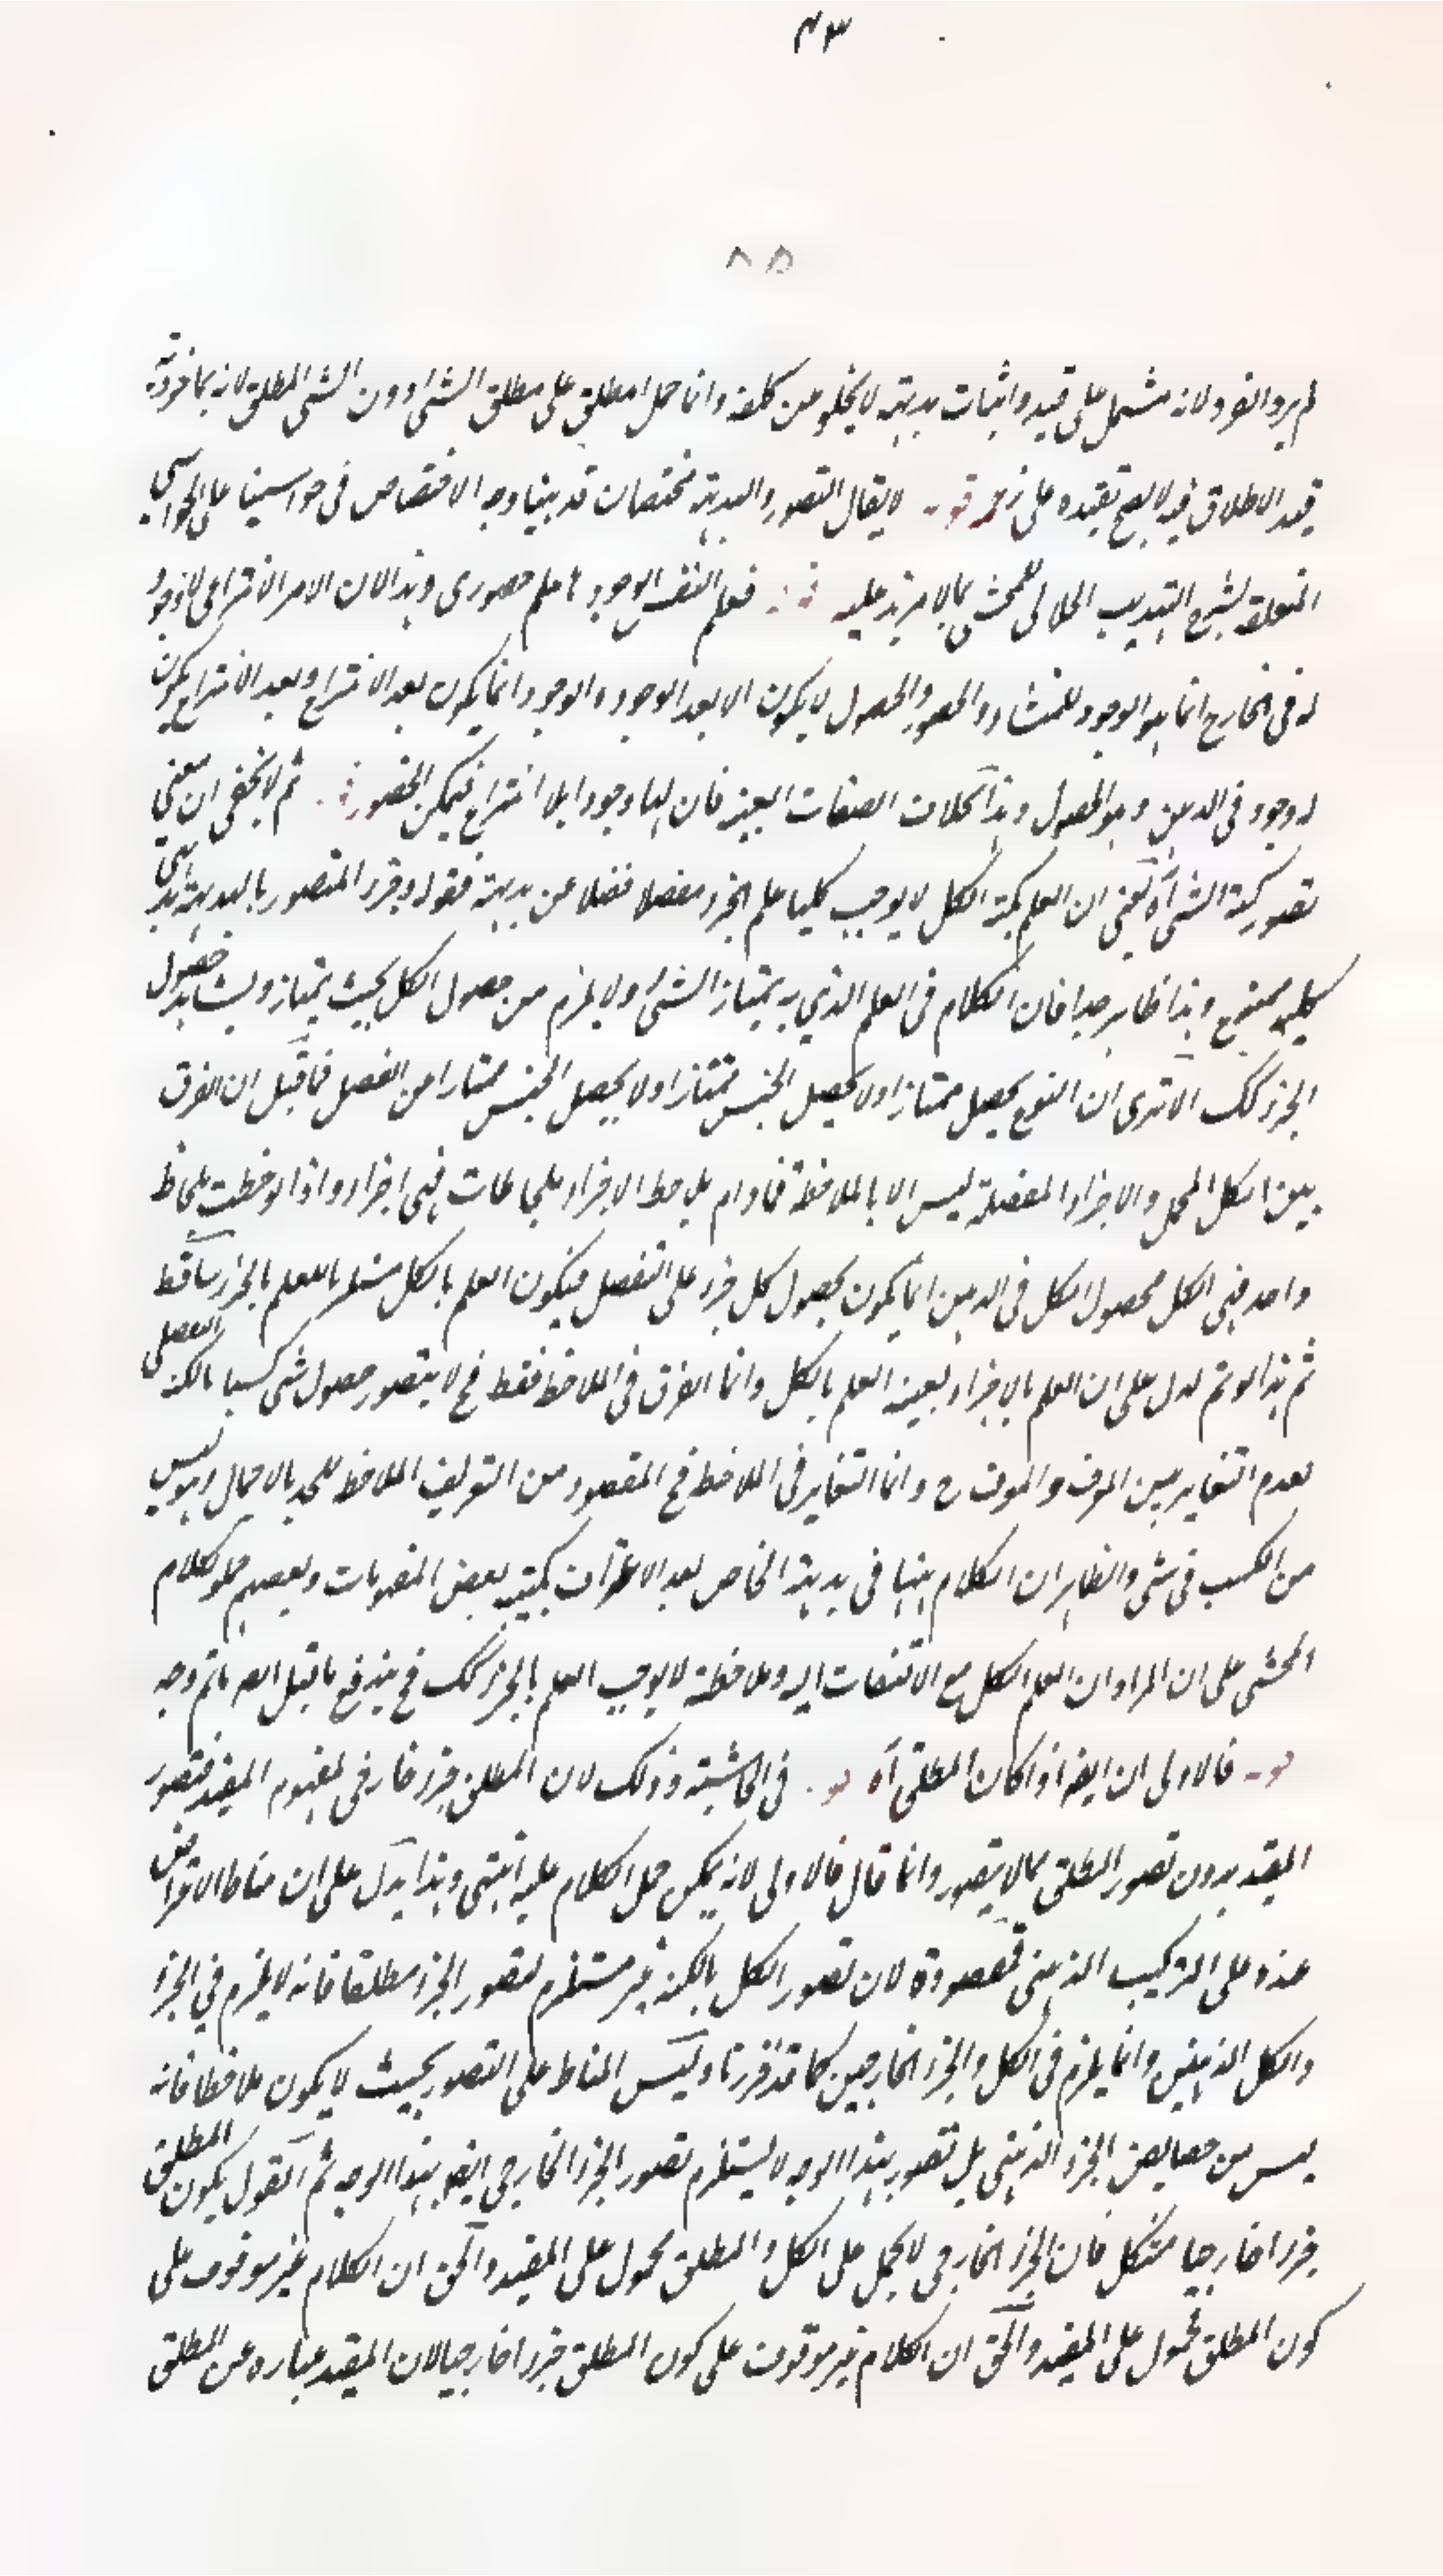 ٤٣
٨٥
لم يرد الفرد لانه مشتمل على قيد واثبات بديهته لا يخلو عن كلفة وانما حمل المطلق على مطلق الشئ دون الشئ المطلق لانه ماخوذ فيه
قيد الاطلاق فيه لا يصح تقيده على قوله لا يقال التصور والبديهة مختصان قد بينا وجه الاختصاص فى حواسينا على الحواشى
المتعلقة بشرح التهذيب الجلالى للمحشى بما لا مزيد عليه قوله فعلم النفس الوجود ا علم حضورى وهذا لان الامر الانتزاعى لا وجود
له فى الخارج انما هو الوجود للمنشاء والحضور والحصول لا يكون الا بعد الوجود والوجود انما يكون بعد الانتزاع وبعد الانتزاع يكون
له وجود فى الذهن وهو الحصول وهذا بخلاف الصفات العينية فان لها وجودا بلا انتزاع فيمكن الحضور قوله ثم لا يخفى ان معنى
تصور كنه الشئ آه يعنى ان العلم بكنه الكل لا يوجب كليا علم الجزء مفصلا فضلا عن بديهته فقوله وجزء المتصور بالبديهة بديهى
كليه ممنوع وهذا ظاهر جدا فان الكلام فى العلم الذي به يمتاز الشئ ولا يلزم من حصول الكل بحيث يمتاز ويشاهد حصول
الجزء كك الا ترى ان النوع يحصل ممتازا ولا يحصل الجنس ممتازا ولا يحصل الجنس ممتازا من الفصل فما قيل ان الفرق
بين الكل المجمل والاجزاء المفصلة ليس الا بالملاحظة فما دام يلاحظ الاجزاء بلحاظات فهى اجزاء واذا لوحظت بلحاظ
واحد فهى الكل فحصول الكل فى الذهن انما يكون بحصول كل جزء على التفصيل فيكون العلم بالكل مستلزما للعلم بالجزء ساقط
ثم هذا لو تم لدل على ان العلم بالاجزاء بعينه العلم بالكل وانما الفرق فى اللحاظ فقط فح لا يتصور حصول شئ كسبا بالكنه التفصيلى
لعدم التغاير بين المعرف والمعرف ح وانما التغاير فى اللحاظ فح المقصود من التعريف الملاحظ للحد بالاجمال وهو ليس
من الكسب فى شئ والظاهر ان الكلام ههنا فى بديهة الخاص بعد الاعتراف بكنهه بعض المفهومات وبعضهم حملو كلام
المحشى على ان المراد ان العلم الكل مع الالتفات اليه وملاحظة لا يوجب العلم بالجزء كك فح يندفع ما قيل اعم ما تم وجه
قوله فالاولى ان ايضا اذا كان المطلق آه قوله فى الحاشية وذلك لان المطلق جزء خارجى لمفهوم المقيد فتصور
المقيد بدون تصور المطلق مما لا يتصور وانما قال فالاولى لانه يمكن حمل الكلام عليه انتهى وهذا يدل على ان مناط الاعتراض
عنده على التركيب الذهنى فمقصوده لان تصور الكل بالكنه غير مستلزم لتصور الجزء مطلقا فانه لا يلزم فى الجزء
والكل الذهنيين وانما يلزم فى الكل والجزء الخارجيين كما قد قررنا وليس المناط على التصور بحيث لا يكون ملاحظا فانه
ليس من خصايص الجزء الذهنى بل تصور بهذا الوجه لا يستلزم تصور الجزء الخارجى ايضا بهذا الوجه ثم القول بكون المطلق
جزءا خارجيا مشكل فان الجزء الخارجى لا يحمل على الكل والمطلق محمول على المقيد والحق ان الكلام غير موقوف على
كون المطلق محمول على المقيد والحق ان الكلام غير موقوف على كون المطلق جزءا خارجيا لان المقيد عبارة عن المطلق